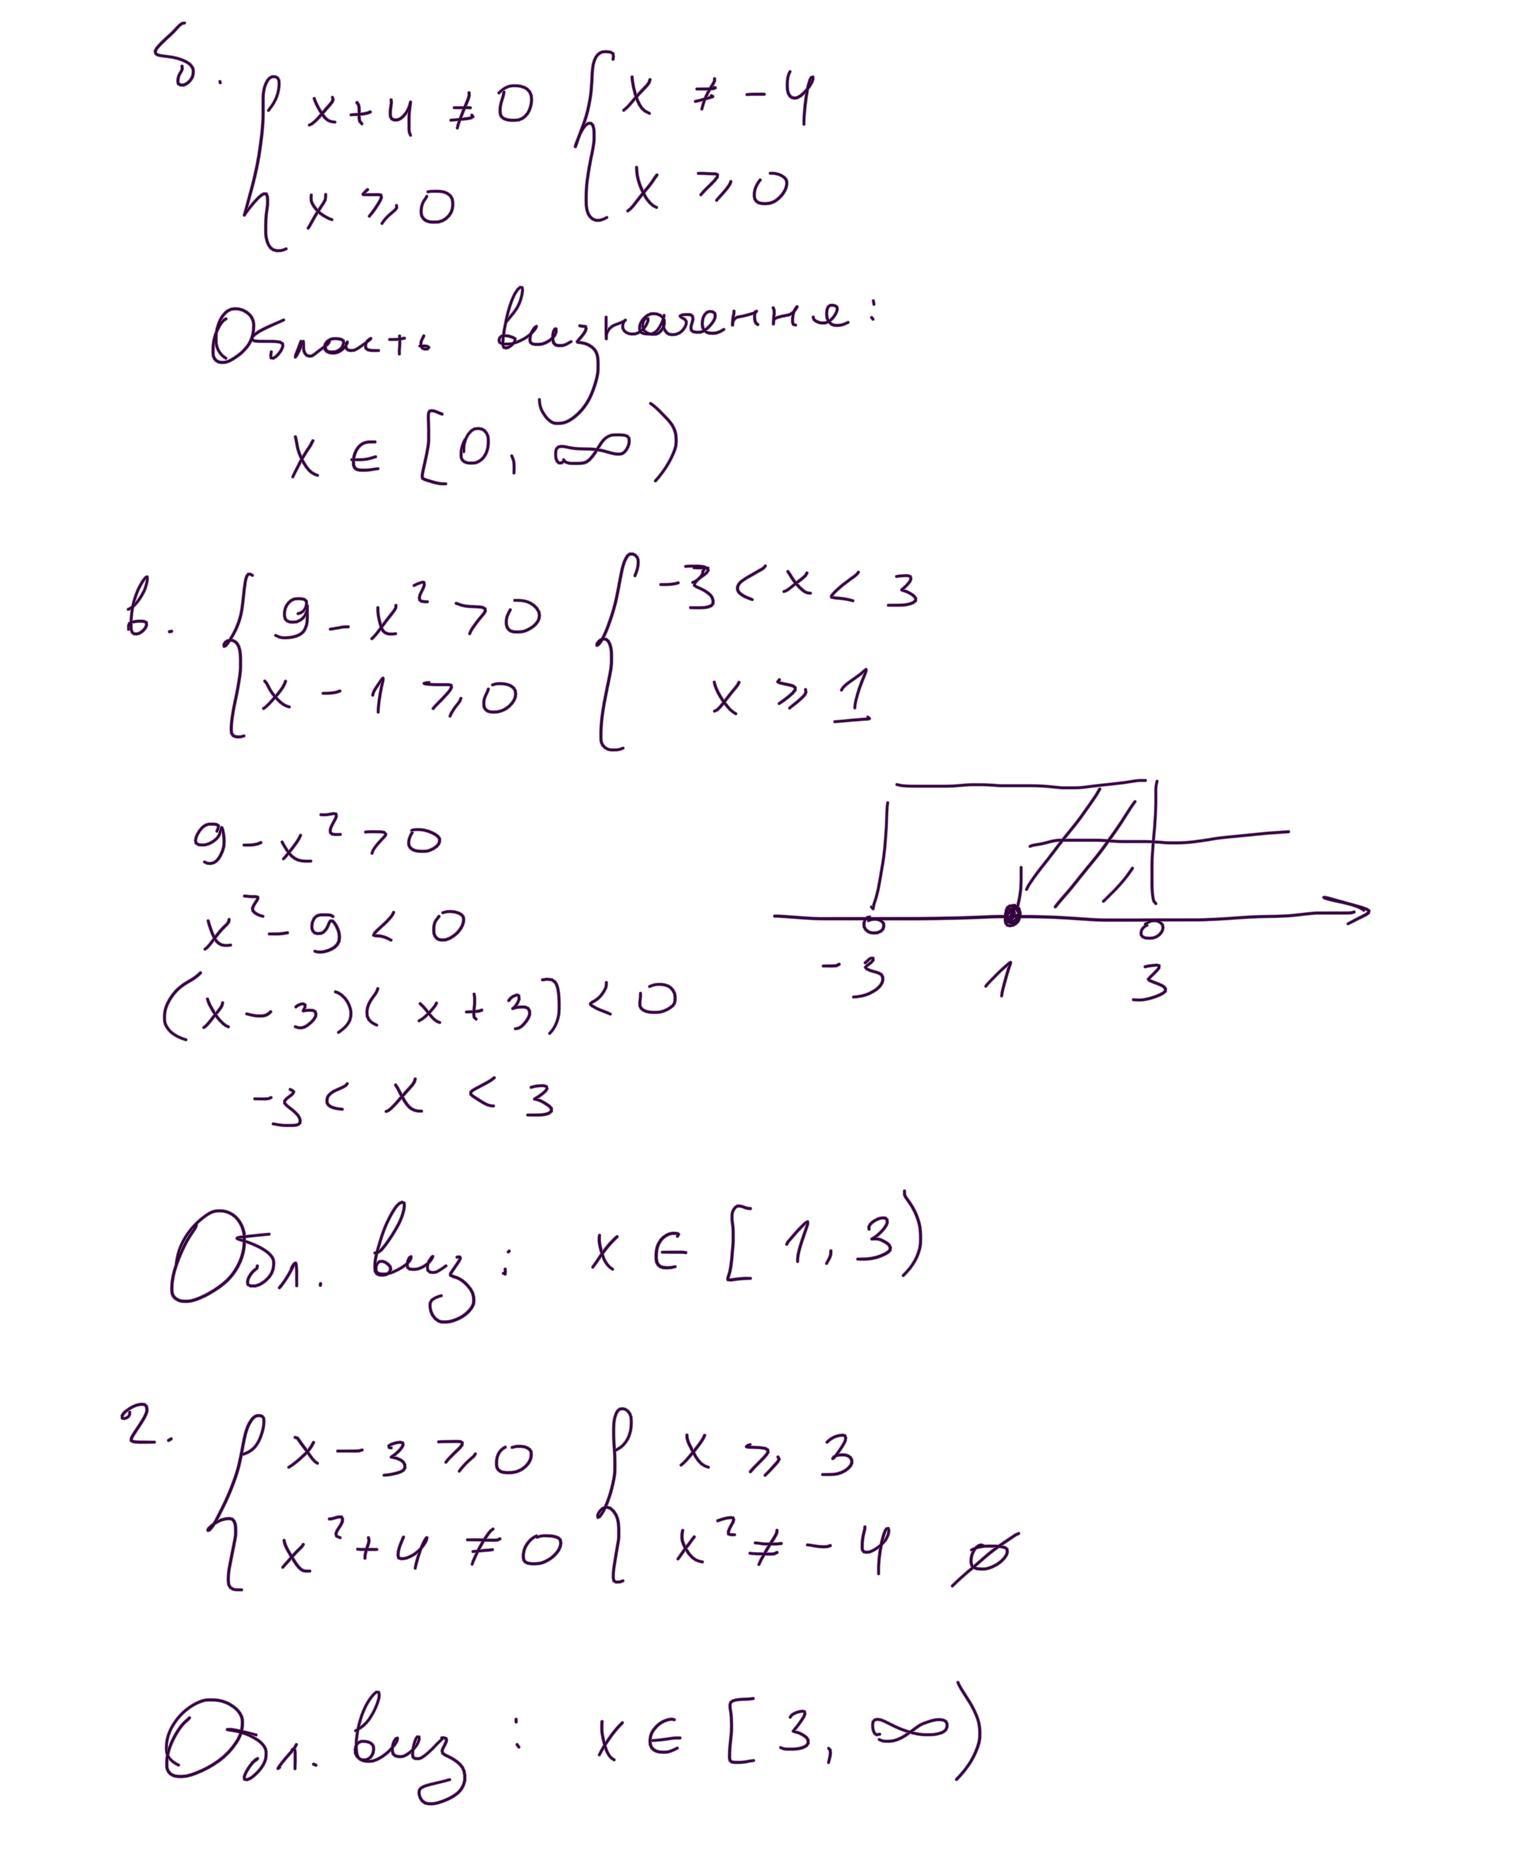 б. { x+4 ≠ 0 { x ≠ -4
x ⩾ 0 x ⩾ 0
Область визначення:
x ∈ [0, ∞)
в. { 9 - x² > 0 { -3 < x < 3
x - 1 ⩾ 0 x ⩾ 1
9 - x² > 0
x² - 9 < 0
(x - 3)(x + 3) < 0
-3 < x < 3
-3 1 3
Обл. виз: x ∈ [1, 3)
г. { x - 3 ⩾ 0 { x ⩾ 3
x² + 4 ≠ 0 x² ≠ -4 ∅
Обл. виз: x ∈ [3, ∞)